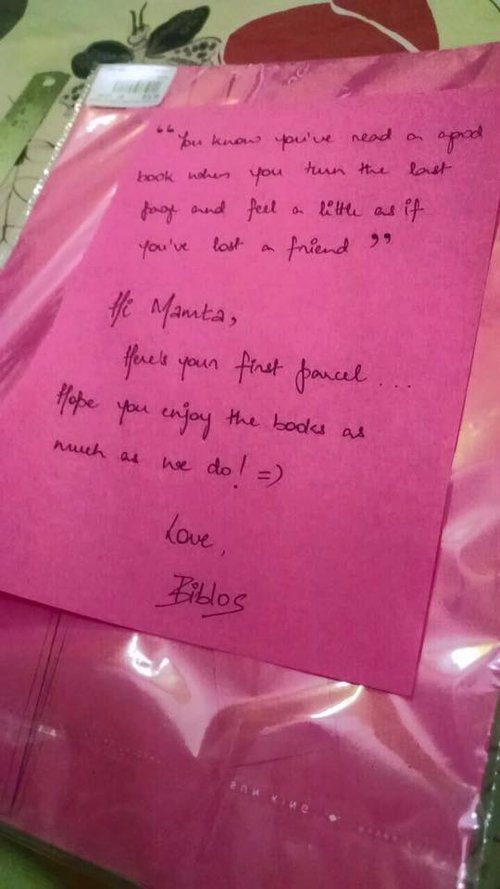 “You know you've read a good
book when you turn the last
page and feel a little as if
you've lost a friend”
Hi Mamta,
Here's your first parcel...
Hope you enjoy the books as
much as we do! =)
Love,
Biblos
SUN KING